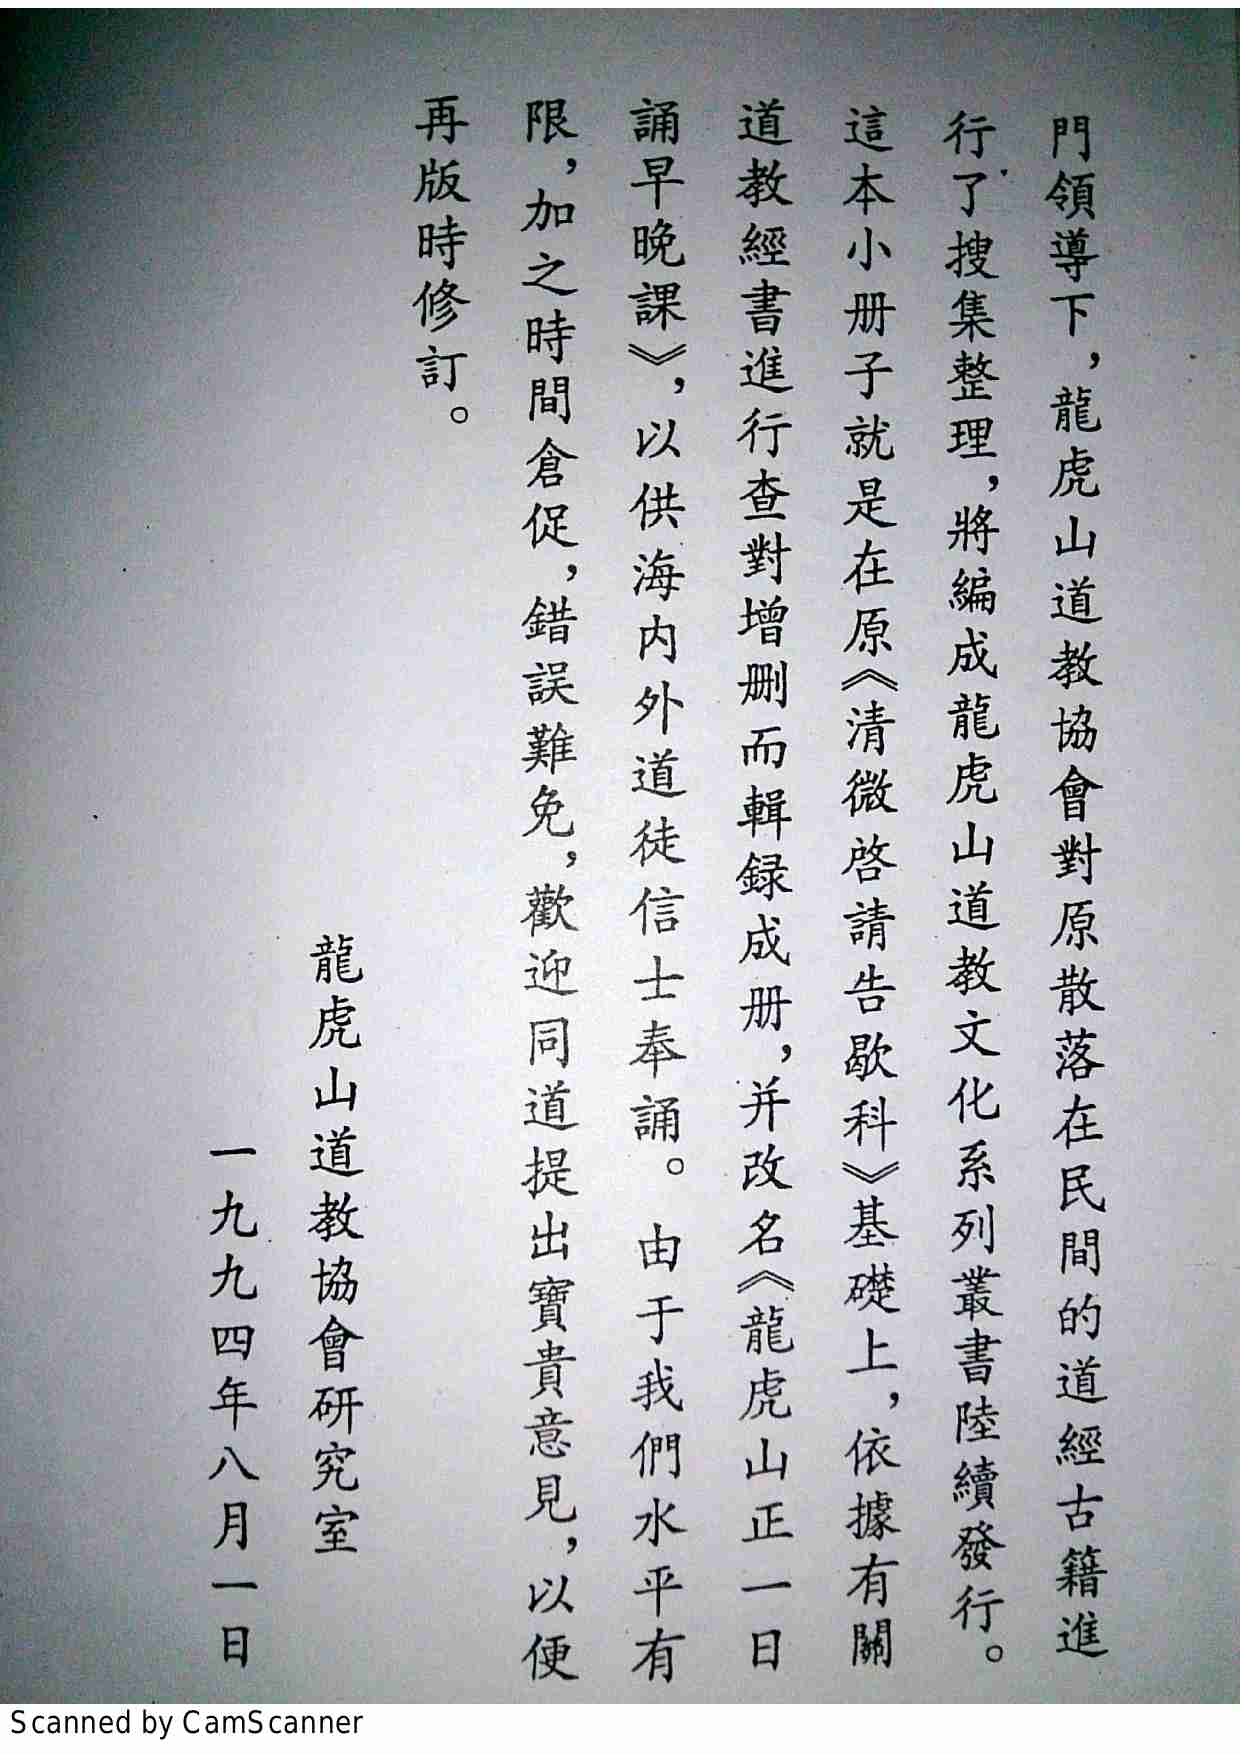 門領導下，龍虎山道教協會對原散落在民間的道經古籍進
行了搜集整理，將編成龍虎山道教文化系列叢書陸續發行。
這本小册子就是在原《清微啓請告歇科》基礎上，依據有關
道教經書進行查對增删而輯録成册，并改名《龍虎山正一日
誦早晚課》，以供海内外道徒信士奉誦。由于我們水平有
限，加之時間倉促，錯誤難免，歡迎同道提出寶貴意見，以便
再版時修訂。
龍虎山道教協會研究室
一九九四年八月一日
Scanned by CamScanner